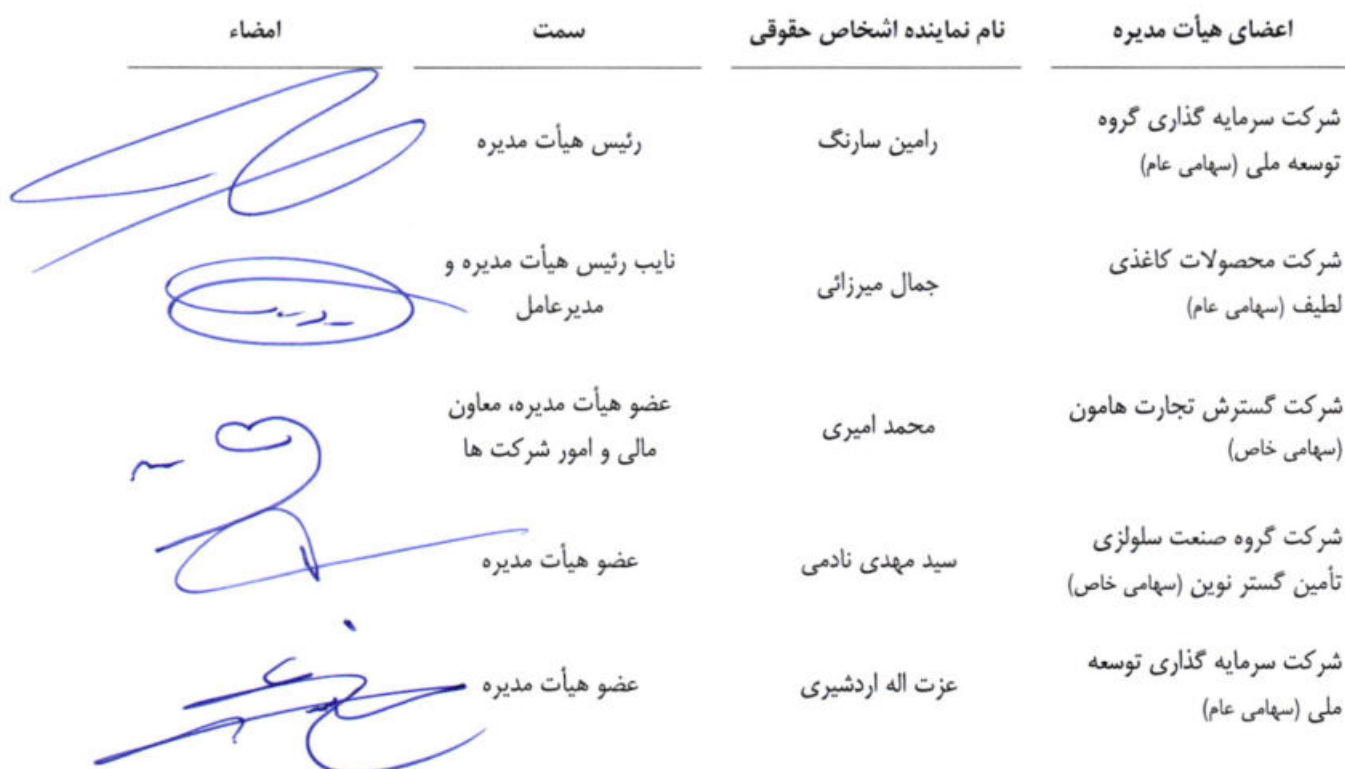 اعضای هیأت مدیره	نام نماینده اشخاص حقوقی	سمت	امضاء
شرکت سرمایه گذاری گروه
توسعه ملی (سهامی عام)
رامین سارنگ
رئیس هیأت مدیره
شرکت محصولات کاغذی
لطیف (سهامی عام)
جمال میرزائی
نایب رئیس هیأت مدیره و
مدیرعامل
شرکت گسترش تجارت هامون
(سهامی خاص)
محمد امیری
عضو هیأت مدیره، معاون
مالی و امور شرکت ها
شرکت گروه صنعت سلولزی
تأمین گستر نوین (سهامی خاص)
سید مهدی نادمی
عضو هیأت مدیره
شرکت سرمایه گذاری توسعه
ملی (سهامی عام)
عزت اله اردشیری
عضو هیأت مدیره